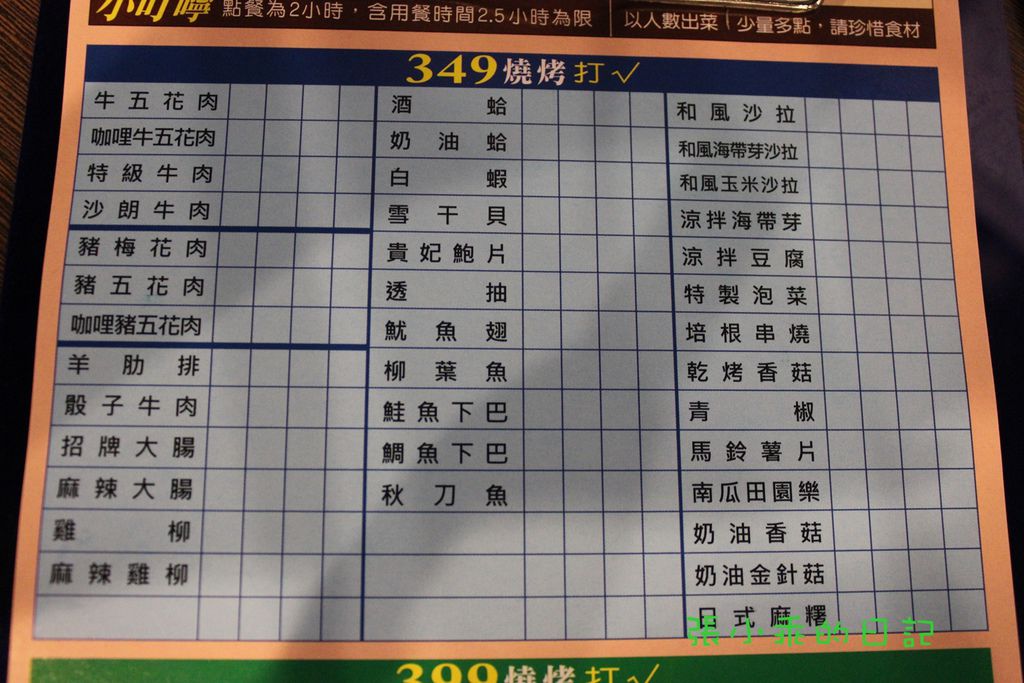 小叮嚀 點餐為2小時，含用餐時間2.5小時為限
以人數出菜 少量多點，請珍惜食材
349燒烤打✓
牛五花肉
咖哩牛五花肉
特級牛肉
沙朗牛肉
豬梅花肉
豬五花肉
咖哩豬五花肉
羊肋排
骰子牛肉
招牌大腸
麻辣大腸
雞柳
麻辣雞柳
酒蛤
奶油蛤
白蝦
雪干貝
貴妃鮑片
透抽
魷魚翅
柳葉魚
鮭魚下巴
鯛魚下巴
秋刀魚
和風沙拉
和風海帶芽沙拉
和風玉米沙拉
涼拌海帶芽
涼拌豆腐
特製泡菜
培根串燒
乾烤香菇
青椒
馬鈴薯片
南瓜田園樂
奶油香菇
奶油金針菇
日式麻糬
張小乖的日記
399燒烤打✓